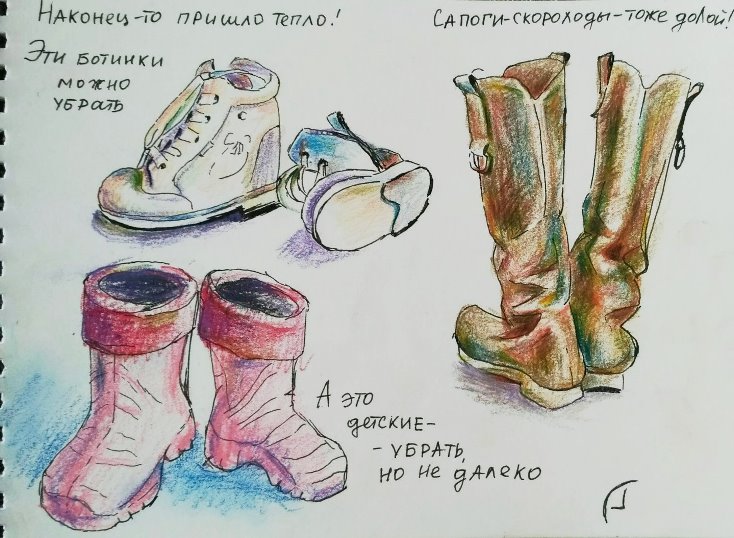 Наконец-то пришло тепло!
Сапоги-скороходы-тоже долой!
Эти ботинки
можно
убрать
А это
детские-
- убрать,
но не далеко